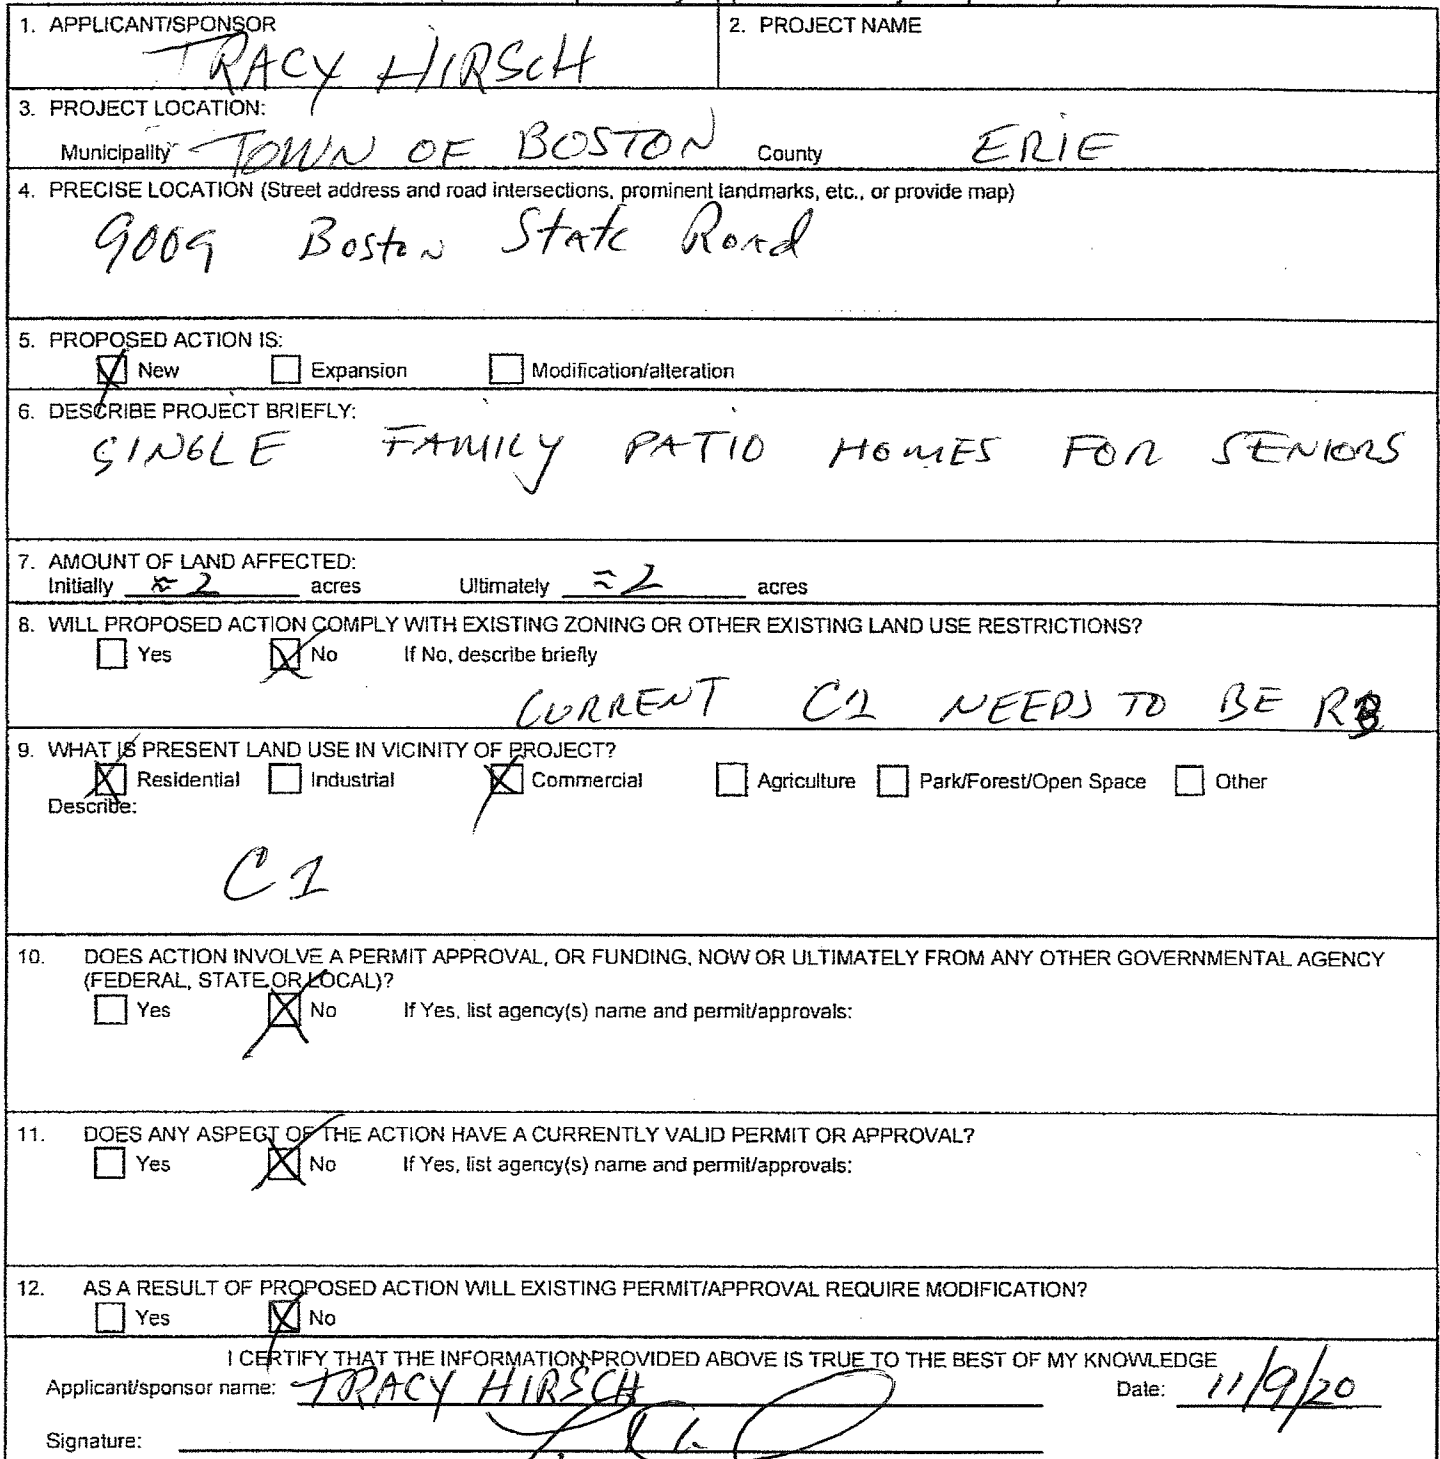 1. APPLICANT/SPONSOR
TRACY HIRSCH
2. PROJECT NAME
3. PROJECT LOCATION:
Municipality TOWN OF BOSTON County ERIE
4. PRECISE LOCATION (Street address and road intersections, prominent landmarks, etc., or provide map)
9009 Boston State Road
5. PROPOSED ACTION IS:
New Expansion Modification/alteration
6. DESCRIBE PROJECT BRIEFLY:
SINGLE FAMILY PATIO HOMES FOR SENIORS
7. AMOUNT OF LAND AFFECTED:
Initially ≈ 2 acres Ultimately ≈ 2 acres
8. WILL PROPOSED ACTION COMPLY WITH EXISTING ZONING OR OTHER EXISTING LAND USE RESTRICTIONS?
Yes No If No, describe briefly
CURRENT C1 NEEDS TO BE
9. WHAT IS PRESENT LAND USE IN VICINITY OF PROJECT?
Residential Industrial Commercial Agriculture Park/Forest/Open Space Other
Describe:
C1
10. DOES ACTION INVOLVE A PERMIT APPROVAL, OR FUNDING, NOW OR ULTIMATELY FROM ANY OTHER GOVERNMENTAL AGENCY
(FEDERAL, STATE OR LOCAL)?
Yes No If Yes, list agency(s) name and permit/approvals:
11. DOES ANY ASPECT OF THE ACTION HAVE A CURRENTLY VALID PERMIT OR APPROVAL?
Yes No If Yes, list agency(s) name and permit/approvals:
12. AS A RESULT OF PROPOSED ACTION WILL EXISTING PERMIT/APPROVAL REQUIRE MODIFICATION?
Yes No
I CERTIFY THAT THE INFORMATION PROVIDED ABOVE IS TRUE TO THE BEST OF MY KNOWLEDGE
Applicant/sponsor name: TRACY HIRSCH Date: 11/9/20
Signature: